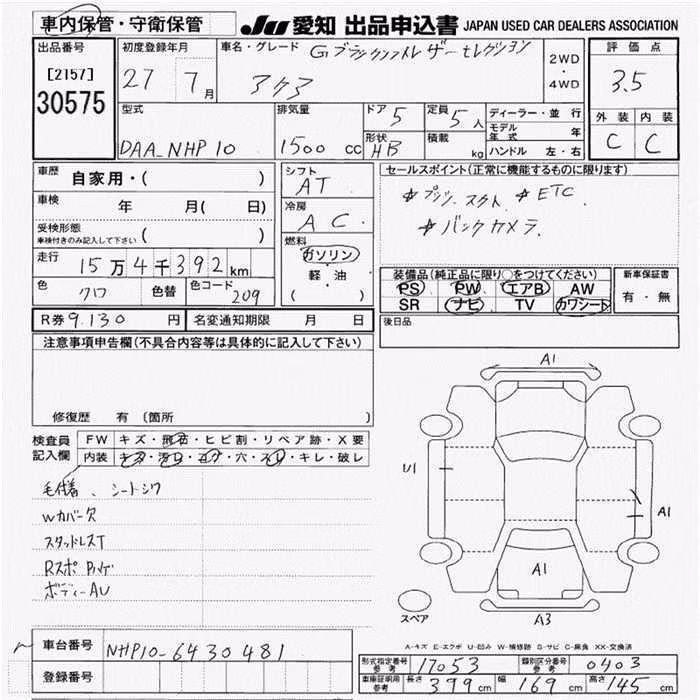 車内保管・守衛保管 JU 愛知 出品申込書 JAPAN USED CAR DEALERS ASSOCIATION
出品番号 初度登録年月 車名・グレード Gブラックソフトレザーセレクション 2WD・4WD 評価点
[2157] 27 7月 アクア 3.5
30575
型式 排気量 ドア 5 定員 5人 ディーラー・並行 外装 内装
モデル年式 年
DAA-NHP10 1500cc 形状 HB 積載 kg ハンドル 左・右 C C
車歴 自家用・( ) シフト AT セールスポイント(正常に機能するものに限ります)
車検 年 月( 日) 冷房 AC ETC
受検形態 ( ) バックカメラ
車検付きのみ記入して下さい
燃料 ガソリン
走行 15万4千392km 軽油 装備品(純正品に限り○をつけてください) 新車保証書
( ) PS PW エアB AW 有・無
色 クロ 色替 色コード 209 SR ナビ TV カワシート
R券 9.130円 名変通知期限 月 日 後日品
注意事項申告欄(不具合内容等は具体的に記入して下さい)
修復歴 有 (箇所 )
検査員記入欄 FW キズ・飛石・ヒビ割・リペア跡・X要
内装 キズ・汚レ・コゲ・穴・スレ・キレ・破レ
シートシワ
Wカバー欠
スタッドレスT
Rスポ
ボディーAU
A1
U1
A1
A1
A3
スペア
A-キズ E-エクボ U-凹み W-補修跡 S-サビ C-腐食 XX-交換済
車台番号 NHP10-6430481
登録番号
型式指定番号 参考 17053 類別区分番号 参考 0403
車庫証明用 参考 長さ 399cm 幅 169cm 高さ 145cm